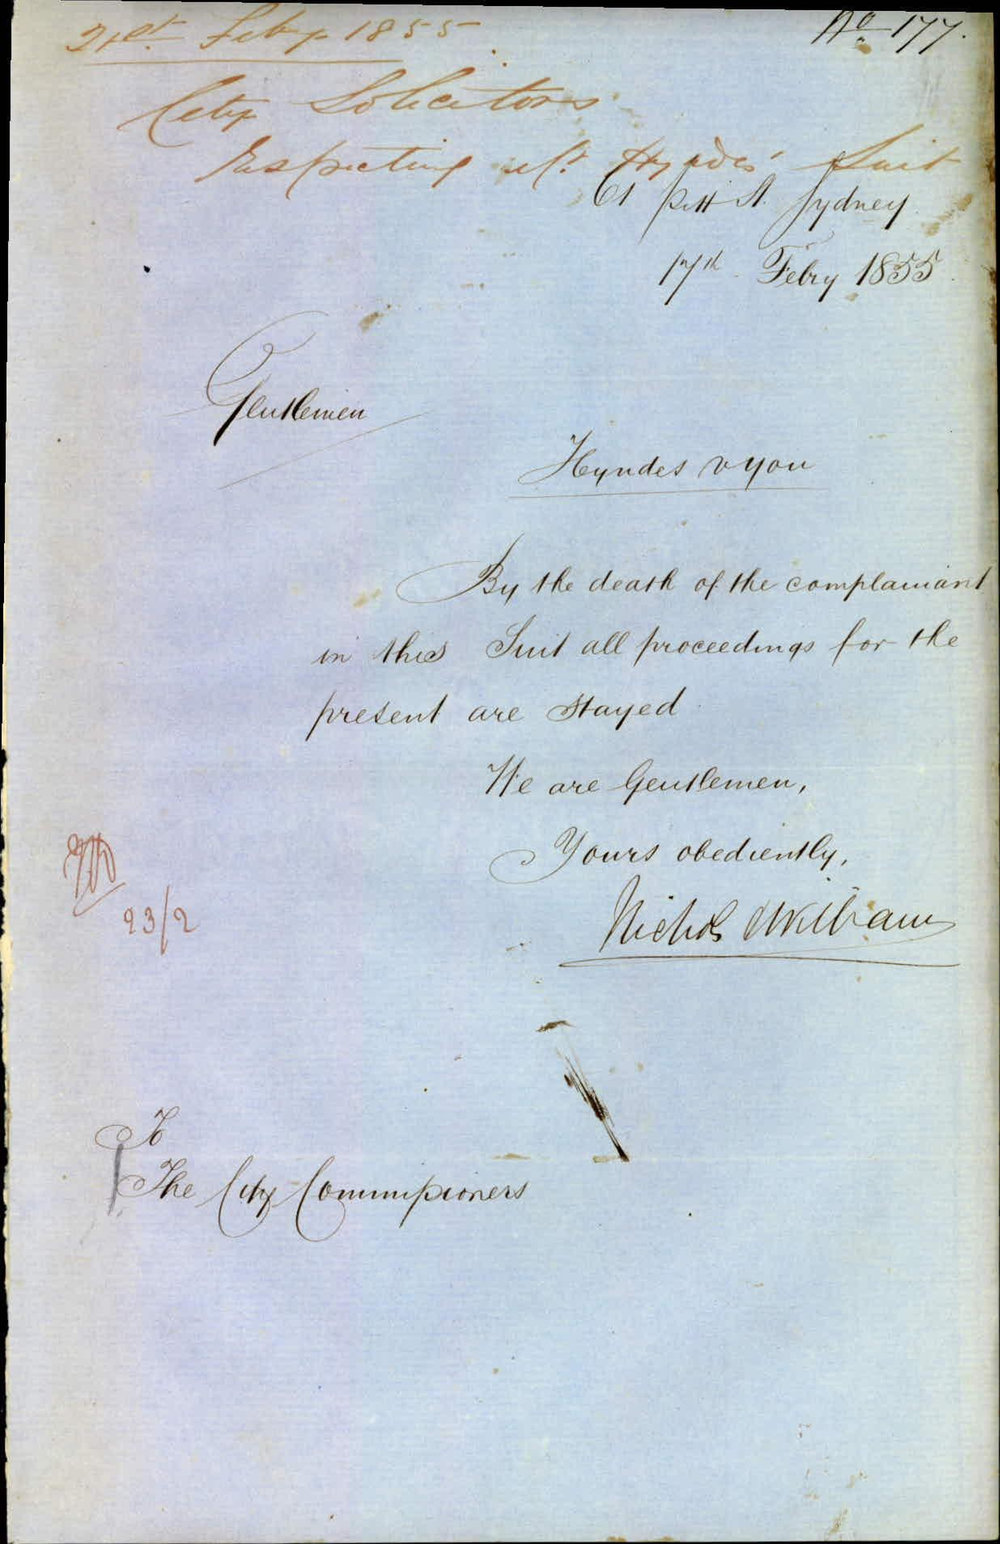 21st Feby 1855
No 177.
City Solicitors
respecting Mr Hyndes' Suit
61 Pitt St. Sydney
17th Febry 1855
Gentlemen
Hyndes v you
By the death of the complainant
in this Suit all proceedings for the
present are Stayed
We are Gentlemen,
Yours obediently,
Nichol Williams
23/2
To
The City Commissioners